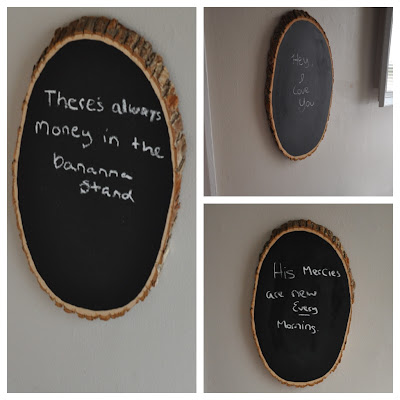 There's always
money in the
bananna
stand
Hey,
I
Love
You
His Mercies
are new
Every
Morning.